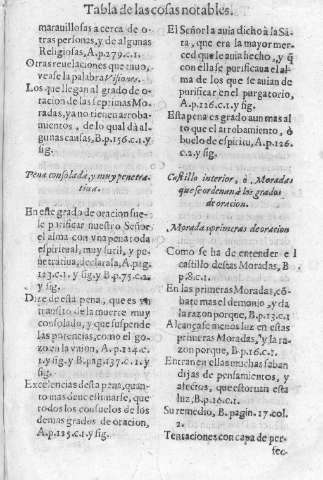 Tabla de las cosas notables.
marauillosas a cerca de o-
tras personas, y de algunas
Religiosas, A.p.279.c.1.
Otras reuelaciones que tauo,
vease la palabra Visiones.
Los que llegan al grado de o-
racion de las septimas Mo-
radas, ya no tienen arroba-
mientos, de lo qual dà al-
gunas causas, B.p.156.c.1. y
sig.
Pena consolada, y muy penetra-
tiua.
En este grado de oracion sue-
le purificar nuestro Señor
el alma con vna pena toda
espiritual, muy sutil, y pe-
netratiua, declarasa, A.pag.
123.c.1. y sig. y B.p.75.c.2.
y sig.
Dize desta pena, que es vn
transito de la muerte muy
consolado, y que suspende
las potencias, como el go-
zo en la vnion, A.p.124.c.
1. y sig. y B.pag.137.c.1. y
sig.
Excelencias desta pena, quan-
to mas deue estimarse, que
todos los consuelos de los
demas grados de oracion,
A.p.125.c.1. y sig.
El Señor la auia dicho à la Sã-
ta, que era la mayor mer-
ced que le auia hecho, y q̃
con ella se purificaua el al-
ma de los que se auian de
purificar en el purgatorio,
A.p.126.c.1. y sig.
Esta pena es grado aun mas al
to que el arrobamiento, ò
buelo de espiritu, A.p.126.
c.2. y sig.
Castillo interior, ò Moradas
que se ordenan à los grados
de oracion.
Moradas primeras de oracion
Como se ha de entender el
castillo destas Moradas, B
p.8.c.1.
En las primeras Moradas, cõ-
bate mas el demonio, y da
la razon porque, B.p.13.c.1
Alcançase menos luz en estas
primeras Moradas, y la ra-
zon porque, B.p.16.c.1.
Entran en ellas muchas saban
dijas de pensamientos, y
afectos, que estoruan esta
luz, B.p.16.c.1.
Su remedio, B. pagin.17.col.
2.
Tentaciones con capa de per-
fec-